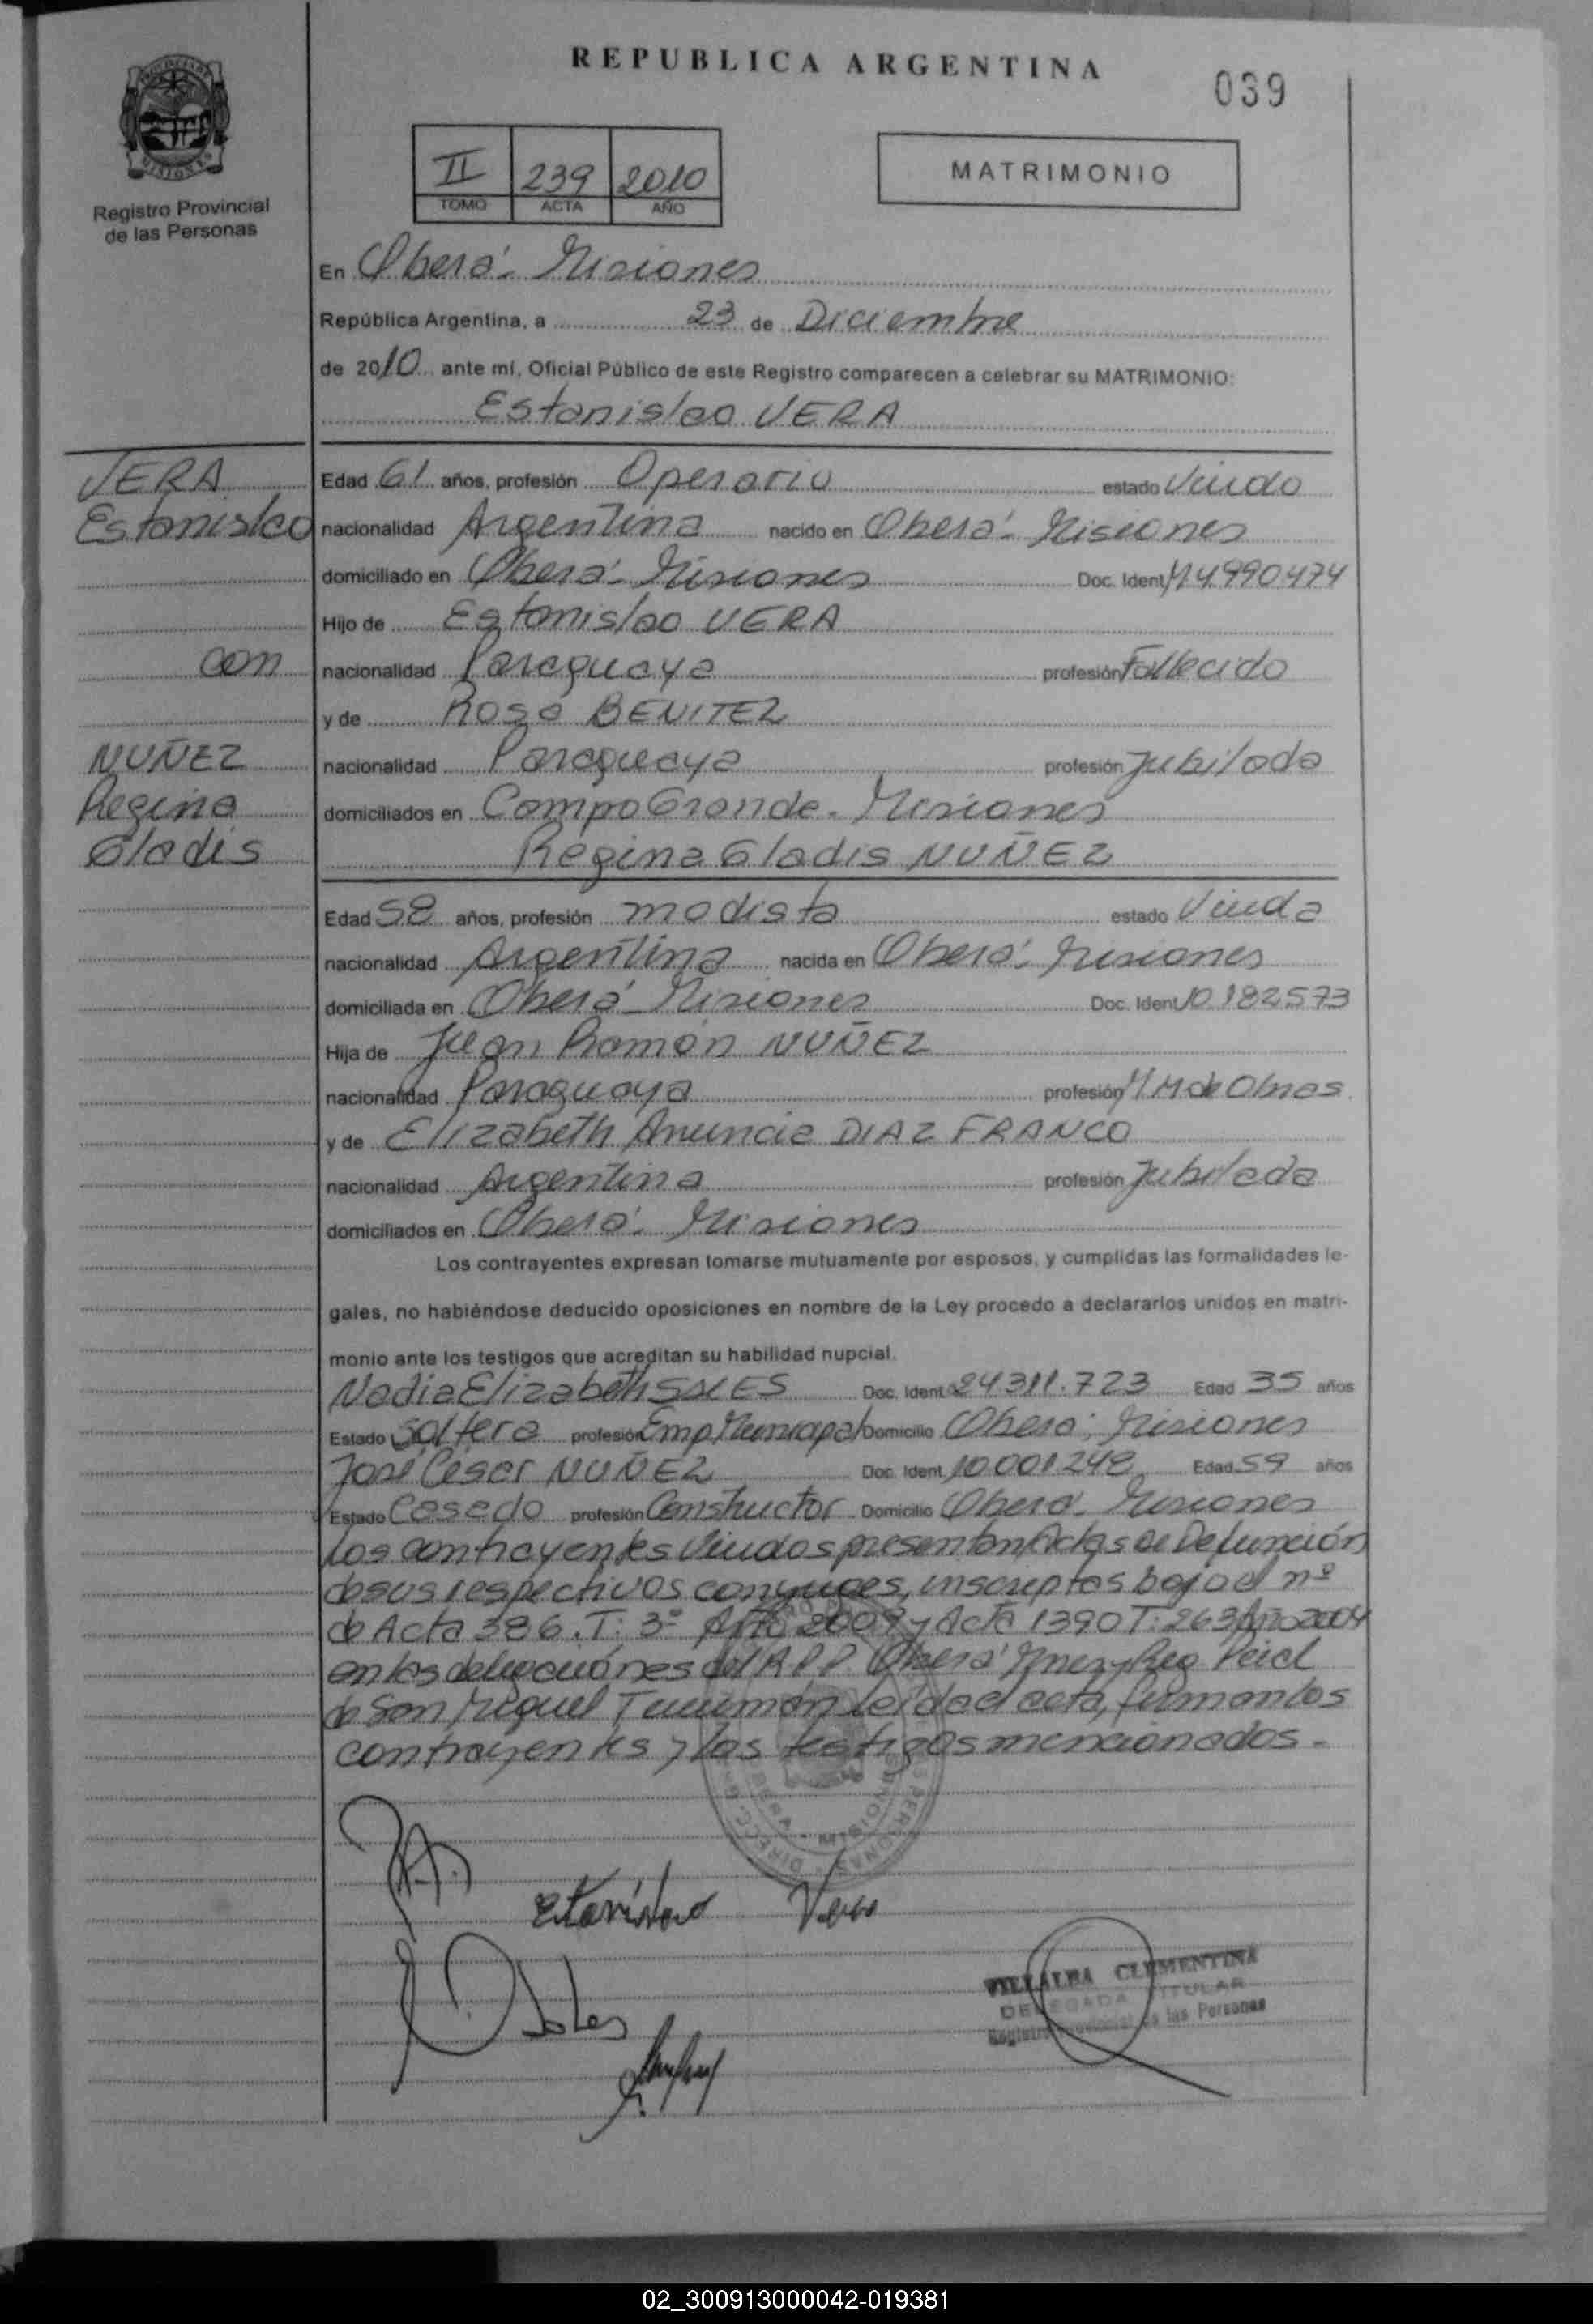 REPUBLICA ARGENTINA
039
Registro Provincial
de las Personas
II 239 2010
TOMO ACTA AÑO
MATRIMONIO
En Oberá - Misiones
República Argentina, a 23 de Diciembre
de 2010 ante mí, Oficial Público de este Registro comparecen a celebrar su MATRIMONIO:
Estanislao VERA
VERA
Estanislao
con
NUÑEZ
Regina
Gladis
Edad 61 años, profesión Operario estado Viudo
nacionalidad Argentina nacido en Oberá - Misiones
domiciliado en Oberá - Misiones Doc. Ident. M4.990.474
Hijo de Estanislao VERA
nacionalidad Paraguaya profesión Fallecido
y de Rosa BENITEZ
nacionalidad Paraguaya profesión Jubilada
domiciliados en Campo Grande - Misiones
Regina Gladis NUÑEZ
Edad 58 años, profesión modista estado Viuda
nacionalidad Argentina nacida en Oberá - Misiones
domiciliada en Oberá - Misiones Doc. Ident. 10.182.573
Hija de Juan Ramón NUÑEZ
nacionalidad Paraguaya profesión M.M de Obras
y de Elizabeth Anuncia DIAZ FRANCO
nacionalidad Argentina profesión Jubilada
domiciliados en Oberá - Misiones
Los contrayentes expresan tomarse mutuamente por esposos, y cumplidas las formalidades le-
gales, no habiéndose deducido oposiciones en nombre de la Ley procedo a declararlos unidos en matri-
monio ante los testigos que acreditan su habilidad nupcial.
Nadia Elizabeth SALES Doc. Ident. 24.311.723 Edad 35 años
Estado Soltera profesión Emp Municipal Domicilio Oberá - Misiones
José César NUÑEZ Doc. Ident. 10.001.248 Edad 59 años
Estado Casado profesión Constructor Domicilio Oberá - Misiones
Los contrayentes Viudos presentan Actas de Defunción
de sus respectivos conyuges, inscriptas bajo el nº
de Acta 386. T: 3º Año 2009 y Acta 1390 T: 263 Año 2004
en las delegaciones del R P P Oberá y Reg
de San Miguel Tucumán leída el acta, firman los
contrayentes y los testigos mencionados.-
Estanislao Vera
Sales
VILLALBA CLEMENTINA
DELEGADA TITULAR
Registro Provincial de las Personas
02_300913000042-019381